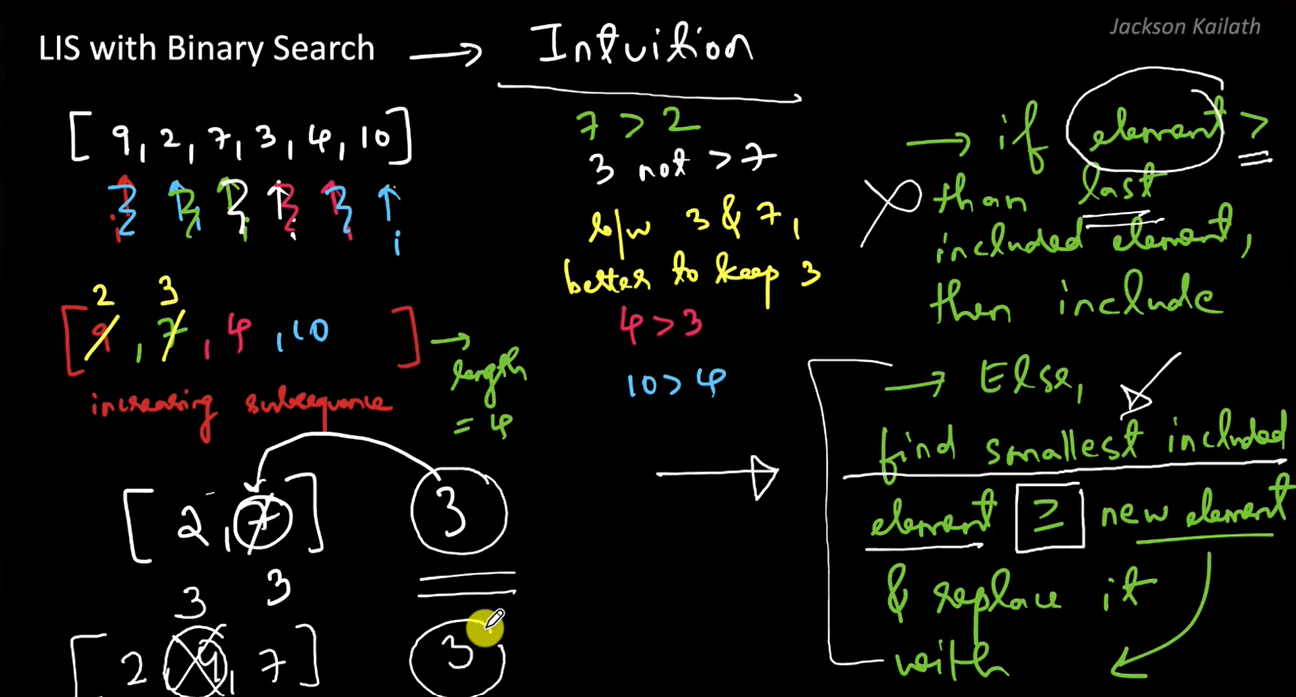 Jackson Kailath
LIS with Binary Search → Intuition
[ 9, 2, 7, 3, 4, 10 ]
i i i i i i
2 3
[ 9, 7, 4, 10 ] → length = 4
increasing subsequence
[ 2, 7 ] 3
3
3
[ 2 9, 7 ] 3
7 > 2
3 not > 7
b/w 3 & 7,
better to keep 3
4 > 3
10 > 4
→ if element >
than last
included element,
then include
→ Else,
find smallest included
element ≥ new element
& replace it
with